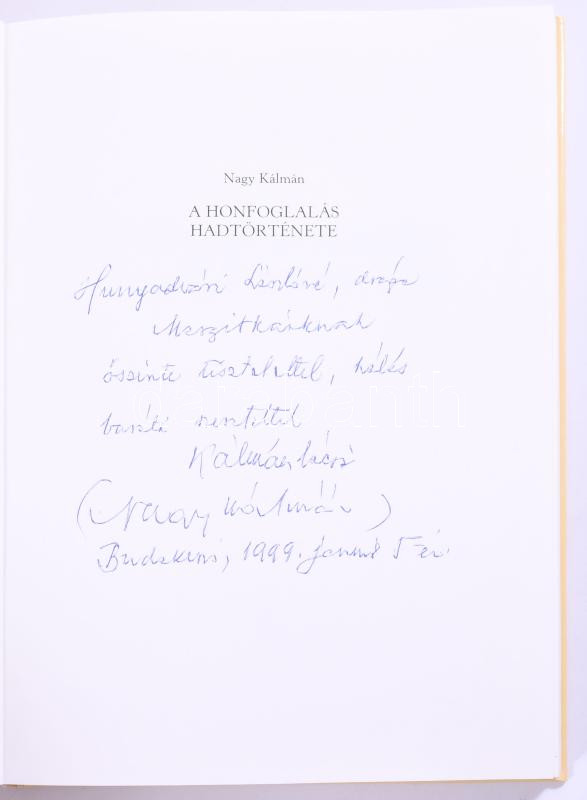 Nagy Kálmán
A HONFOGLALÁS
HADTÖRTÉNETE
Hunyadvári Lászlóné, drága
őszinte tisztelettel, hálás
baráti szeretettel
Kálmán bácsi
(Nagy Kálmán)
1999. 5-én.